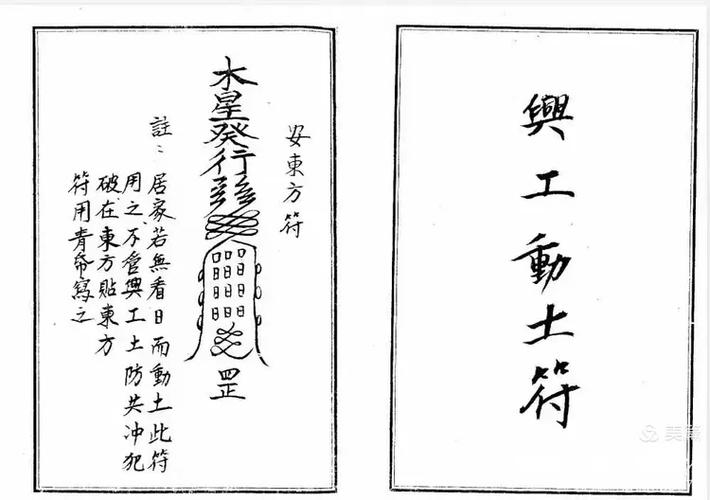 興工動土符
安東方符
木星發行
罡
註：居家若無看日而動土此符
用之不管興工土防共冲犯
破在東方貼東方
符用青帋寫之
美篇